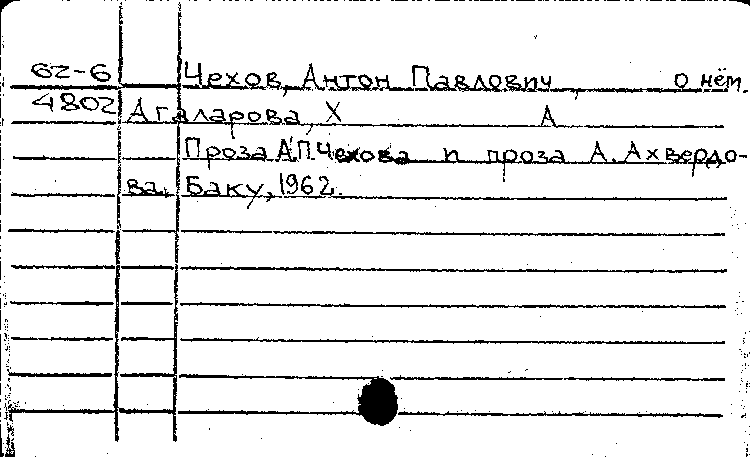 62-6 Чехов, Антон Павлович, о нём.
4802 Агаларова, Х А
Проза А.П.Чехова и проза А. Ахвердо-
ва. Баку, 1962.